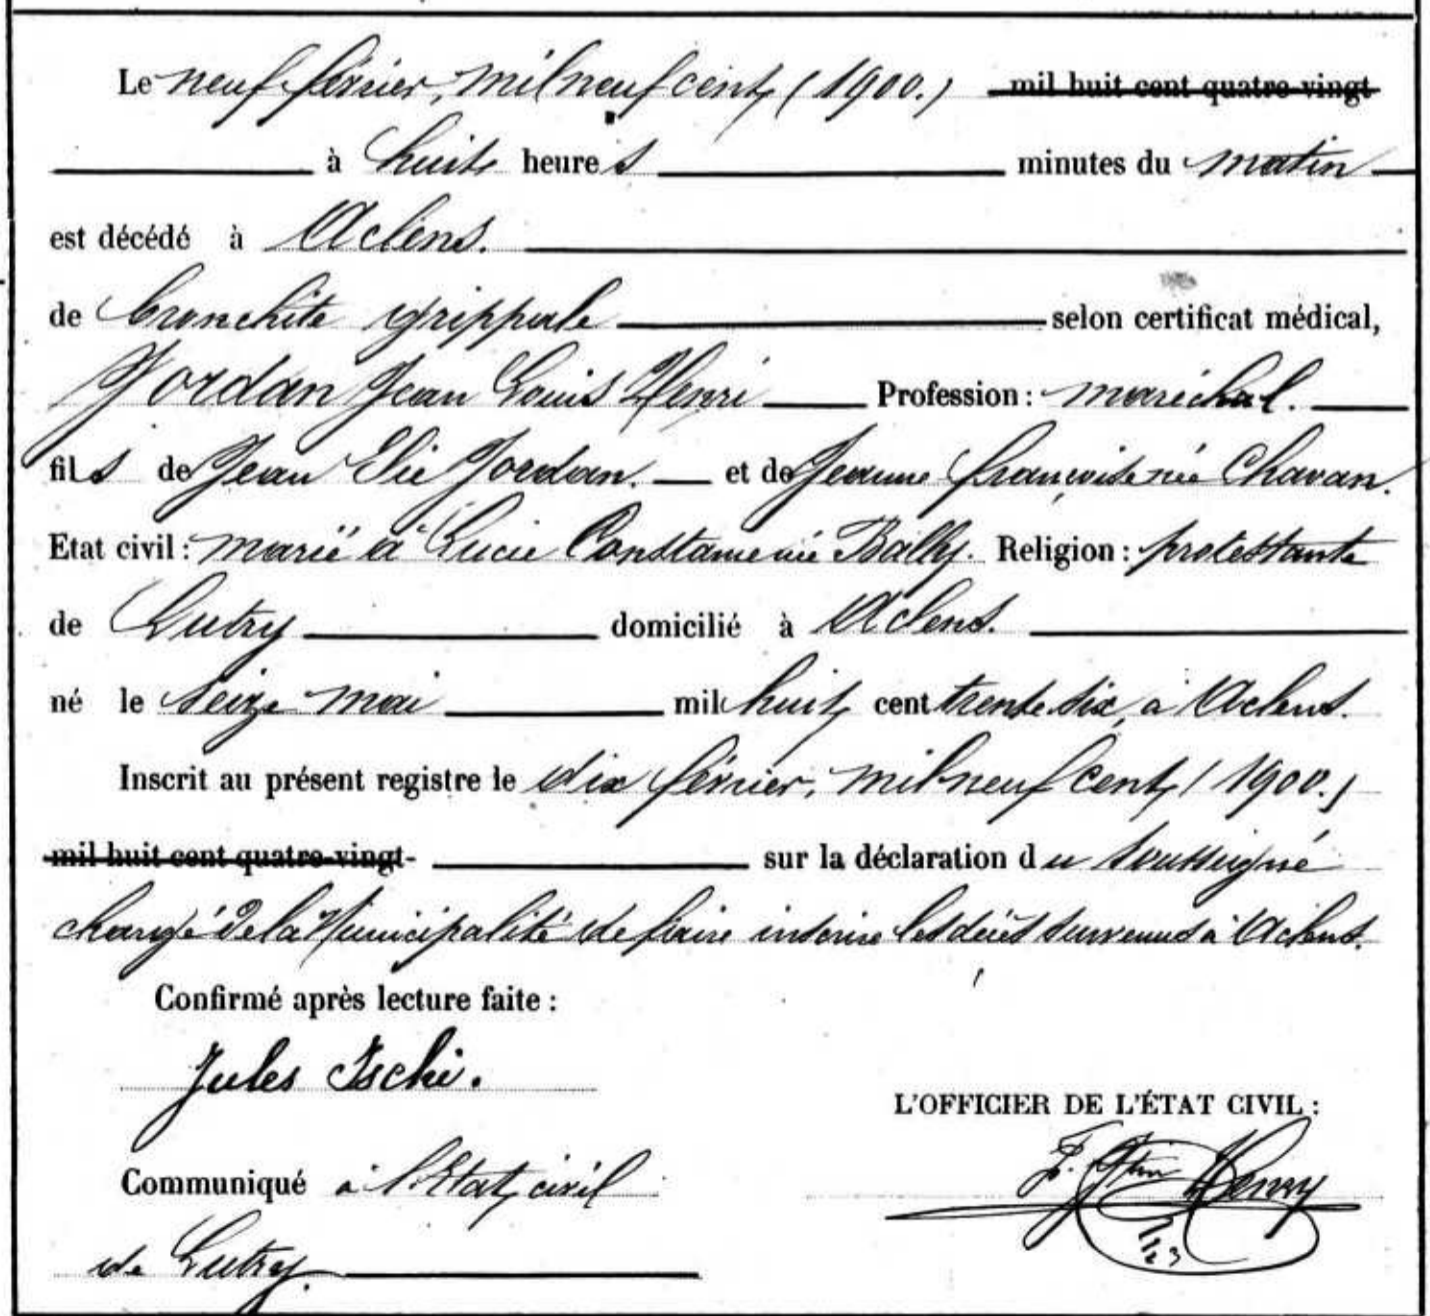 Le neuf février, mil neuf cent (1900.) mil huit cent quatre-vingt
à huit heures minutes du matin
est décédé à Aclens.
de bronchite grippale selon certificat médical,
Jordan Jean Louis Henri Profession: maréchal.
fils de Jean Elie Jordan. et de Jeanne françoise née Chavan.
Etat civil: marié à Lucie Constance née Bally. Religion: protestante
de Lutry domicilié à Aclens.
né le seize mai mil huit cent trente six, à Aclens.
Inscrit au présent registre le dix février, mil neuf cent (1900.)
mil huit cent quatre-vingt- sur la déclaration du soussigné
chargé de la Municipalité de faire inscrire les décès survenus à Aclens.
Confirmé après lecture faite:
Jules Ischi.
L'OFFICIER DE L'ÉTAT CIVIL:
Communiqué à l'Etat civil
de Lutry.